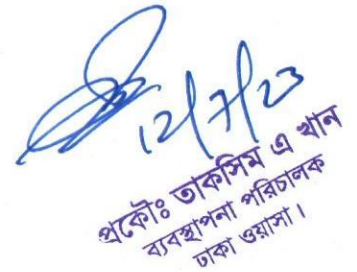 12/7/23
প্রকৌঃ তাকসিম এ খান
ব্যবস্থাপনা পরিচালক
ঢাকা ওয়াসা।